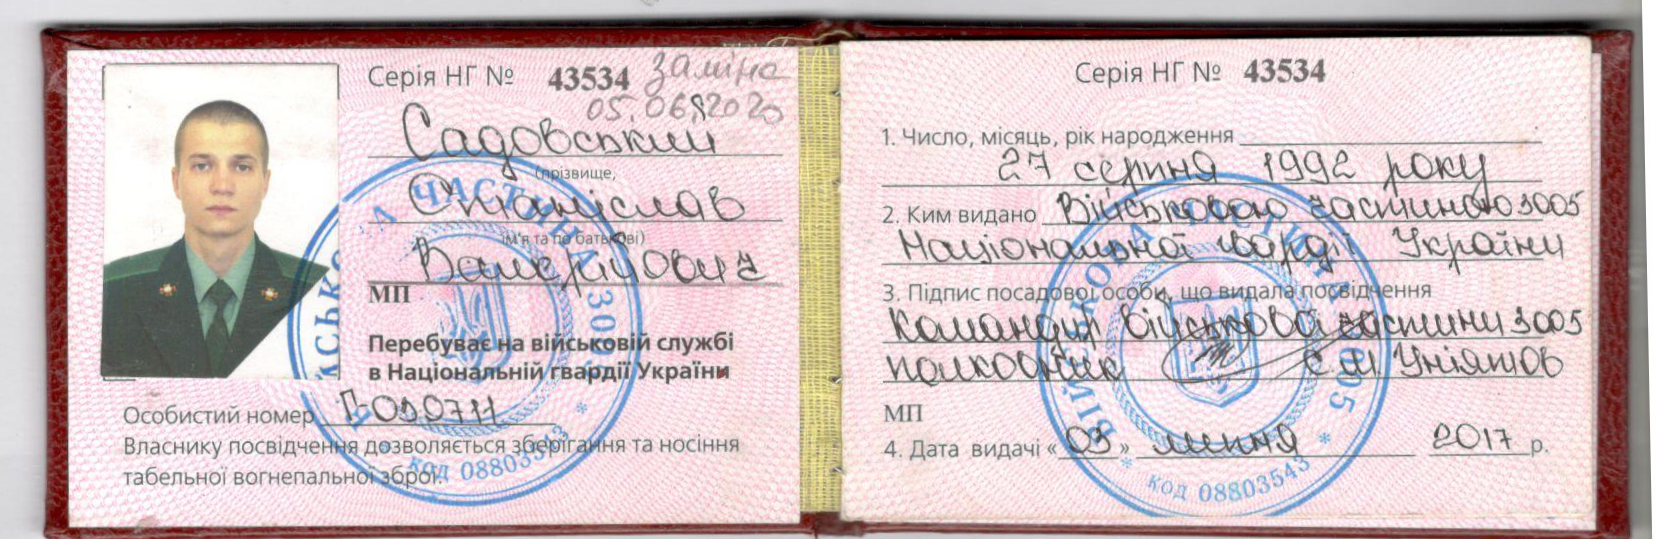 Серія НГ № 43534 заміна
05.06.2020
Садовський
(прізвище,
Станіслав
ім'я та по батькові)
Валерійович
МП
Перебуває на військовій службі
в Національній гвардії України
Особистий номер Г-030711
Власнику посвідчення дозволяється зберігання та носіння
табельної вогнепальної зброї.
ВІЙСЬКОВА ЧАСТИНА 3005
* КОД 08803543 *
Серія НГ № 43534
1. Число, місяць, рік народження
27 серпня 1992 року
2. Ким видано Військовою частиною 3005
Національної гвардії України
3. Підпис посадової особи, що видала посвідчення
Командир військової частини 3005
полковник С.М. Уніятов
МП
4. Дата видачі « 03 » липня 2017 р.
ВІЙСЬКОВА ЧАСТИНА 3005
* КОД 08803543 *